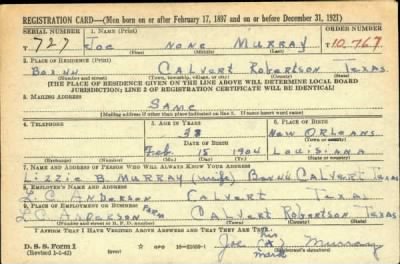 REGISTRATION CARD—(Men born on or after February 17, 1897 and on or before December 31, 1921)
SERIAL NUMBER 1. NAME (Print) ORDER NUMBER
T 727 Joe none Murray T 10,767
(First) (Middle) (Last)
2. PLACE OF RESIDENCE (Print)
Box 44 Calvert Robertson Texas
(Number and street) (Town, township, village, or city) (County) (State)
[THE PLACE OF RESIDENCE GIVEN ON THE LINE ABOVE WILL DETERMINE LOCAL BOARD
JURISDICTION; LINE 2 OF REGISTRATION CERTIFICATE WILL BE IDENTICAL]
3. MAILING ADDRESS
Same
[Mailing address if other than place indicated on line 2. If same insert word same]
4. TELEPHONE 5. AGE IN YEARS 6. PLACE OF BIRTH
38 New Orleans
DATE OF BIRTH (Town or county)
Feb. 15 1904 Louisiana
(Exchange) (Number) (Mo.) (Day) (Yr.) (State or country)
7. NAME AND ADDRESS OF PERSON WHO WILL ALWAYS KNOW YOUR ADDRESS
Lizzie B. Murray (wife) Box 44 Calvert Texas
8. EMPLOYER'S NAME AND ADDRESS
L. C. Anderson Calvert Texas
9. PLACE OF EMPLOYMENT OR BUSINESS
L C Anderson Farm Calvert Robertson Texas
(Number and street or R. F. D. number) (Town) (County) (State)
I AFFIRM THAT I HAVE VERIFIED ABOVE ANSWERS AND THAT THEY ARE TRUE.
D. S. S. Form 1
(Revised 1-1-42) (over)
Joe his (X) mark Murray
(Registrant's signature)